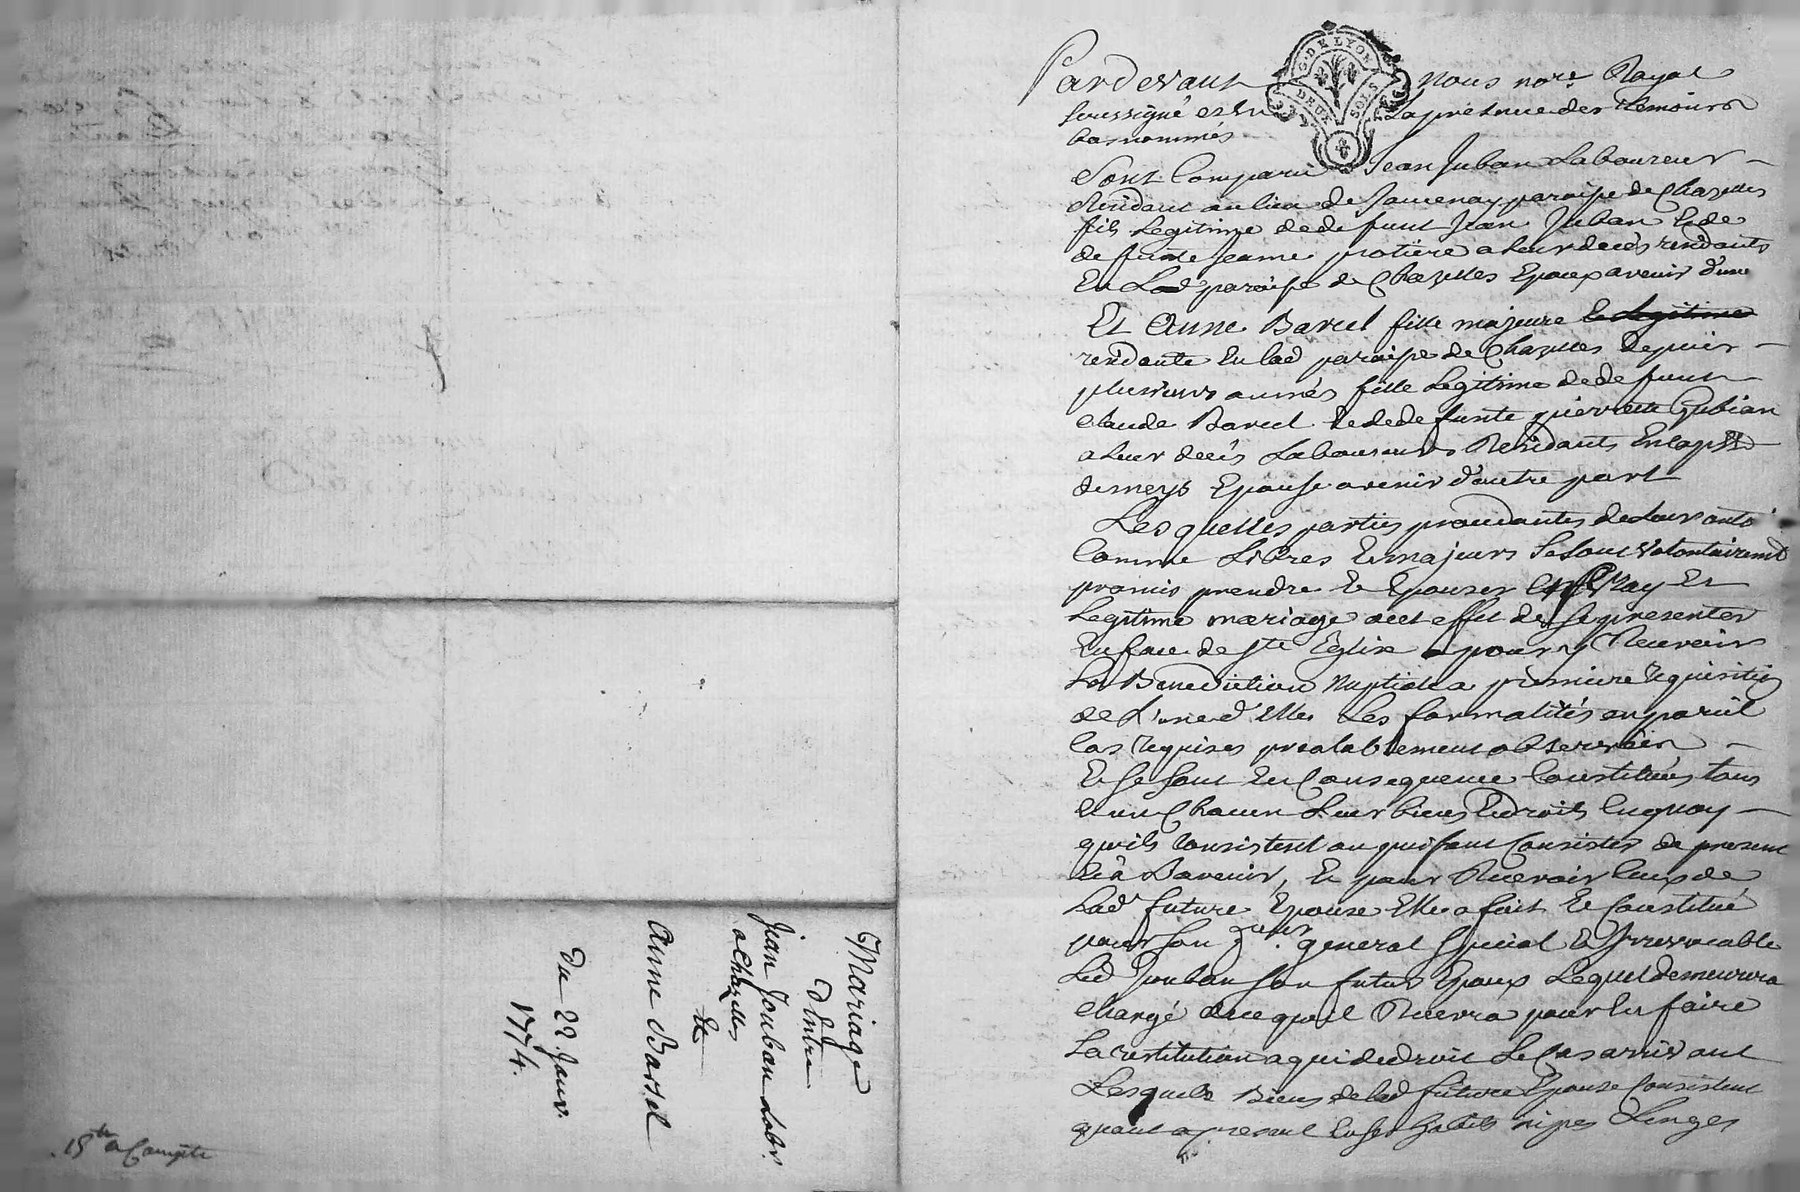 Mariage
d'Entre
Jean Jouban Labr.
a Chazelles
et
Anne Barsel
Du 22. Janv.
1774.
15 tt a Compte
Pardevant Nous no.re Royal
G. DE LYON
DEUX SOLS
Soussigné et En La presence des Temoins
bas nommés
Sont Comparu Jean Juban Laboureur
Residant au lieu de paroisse de Chazelles
fils Legitime de defunt Jean Juban et de
defunte Jeanne a leur decés residants
En Lad paroisse de Chazelles Epoux avenir d'une
Et Anne Barcel fille majeure et Legitime
residante En lad paroisse de Chazelles depuis
plusieurs années fille Legitime de defunt
claude Barcel et de defunte pierrette Gubian
a leur decés Laboureurs Residants En la psse
de meys Epouse avenir d'autre part
Lesquelles parties procedantes de leur autō
Comme Libres et majeurs Se sont Volontairemt
promis prendre et Epouser En Vray et
Legitime mariage a cet effet de se presenter
En face de Ste Eglise pour y Recevoir
La Benediction Nuptiale a premiere requisition
de L'une d'Elles Les formalités en pareil
Cas requises prealablement observées
Et se sont En Consequence Constitués tous
et un Chacun Leur biens et droits En quoy
qu'ils Consistent ou puissent Consister de present
et à L'avenir, Et pour Recevoir Ceux de
Lad future Epouse Elle a fait et Constitué
pour son general special et Irrevocable
Led Jouban son futur Epoux Lequel demeurera
chargé de ce qu'il Recevra pour En faire
La restitution a qui de droit Le Cas arrivant
Lesquels Biens de lad future Epouse Consistent
quant a present En ses habits nipes Linges